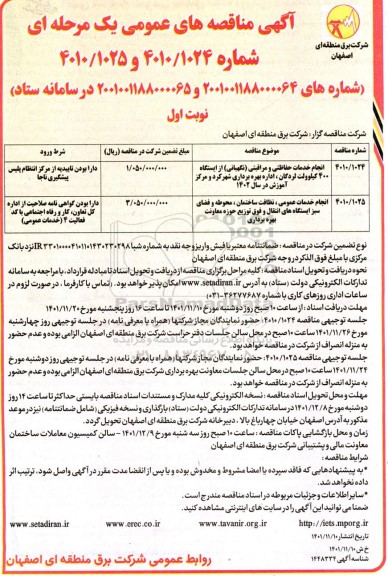 آگهی مناقصه های عمومی یک مرحله ای
شماره ۴۰۱۰/۱۰۲۴ و ۴۰۱۰/۱۰۲۵
(شماره های ۲۰۰۱۰۰۱۱۸۸۰۰۰۰۶۴ و ۲۰۰۱۰۰۱۱۸۸۰۰۰۰۶۵ در سامانه ستاد)
نوبت اول
شرکت برق منطقه ای
اصفهان
شرکت مناقصه گزار: شرکت برق منطقه ای اصفهان
شماره مناقصه موضوع مناقصه مبلغ تضمین شرکت در مناقصه (ریال) شرط ورود
۴۰۱۰/۱۰۲۴ انجام خدمات حفاظتی و مراقبتی (نگهبانی) از ایستگاه ۴۰۰ کیلوولت لردگان، اداره بهره برداری شهرکرد و مرکز آموزش در سال ۱۴۰۲ ۱/۰۵۰/۰۰۰/۰۰۰ دارا بودن تاییدیه از مرکز انتظام پلیس پیشگیری ناجا
۴۰۱۰/۱۰۲۵ انجام خدمات عمومی، نظافت ساختمان، محوطه و فضای سبز ایستگاه های انتقال و فوق توزیع حوزه معاونت بهره برداری ۳/۰۵۰/۰۰۰/۰۰۰ دارا بودن گواهی نامه صلاحیت از اداره کل تعاون، کار و رفاه اجتماعی با کد فعالیت ۴ (خدمات عمومی)
نوع تضمین شرکت در مناقصه: ضمانتنامه معتبر یا فیش واریز وجه نقد به شماره شبا نزد بانک
مرکزی با مبلغ فوق الذکر در وجه شرکت برق منطقه ای اصفهان
نحوه دریافت و تحویل اسناد مناقصه: کلیه مراحل برگزاری مناقصه از دریافت و تحویل اسناد تا مبادله قرارداد، با مراجعه به سامانه
تدارکات الکترونیکی دولت (ستاد) به آدرس www.setadiran.ir امکان پذیر خواهد بود. (تماس با کارفرما: در صورت لزوم در
ساعات اداری روزهای کاری با شماره ۳۶۲۷۷۶۸۷-۰۳۱)
مهلت دریافت اسناد: از ساعت ۱۰ صبح روز دوشنبه مورخ ۱۴۰۱/۱۱/۱۰ تا ساعت ۱۶ روز پنجشنبه مورخ ۱۴۰۱/۱۱/۲۰
جلسه توجیهی مناقصه ۴۰۱۰/۱۰۲۴: حضور نمایندگان مجاز شرکتها (همراه با معرفی نامه) در جلسه توجیهی روز چهارشنبه
مورخ ۱۴۰۱/۱۱/۲۶ ساعت ۱۰ صبح در محل سالن جلسات دفتر حراست شرکت برق منطقه ای اصفهان الزامی بوده و عدم حضور
به منزله انصراف از شرکت در مناقصه خواهد بود.
جلسه توجیهی مناقصه ۴۰۱۰/۱۰۲۵: حضور نمایندگان مجاز شرکتها (همراه با معرفی نامه) در جلسه توجیهی روز دوشنبه مورخ
۱۴۰۱/۱۱/۲۴ ساعت ۱۰ صبح در محل سالن جلسات معاونت بهره برداری شرکت برق منطقه ای اصفهان الزامی بوده و عدم حضور
به منزله انصراف از شرکت در مناقصه خواهد بود.
مهلت و محل تحویل اسناد مناقصه: نسخه الکترونیکی کلیه مدارک و مستندات اسناد مناقصه بایستی حداکثر تا ساعت ۱۴ روز
دوشنبه مورخ ۱۴۰۱/۱۲/۸ در سامانه تدارکات الکترونیکی دولت (ستاد) بارگذاری و نسخه فیزیکی (شامل ضمانتنامه) نیز در موعد
مذکور به آدرس اصفهان خیابان چهارباغ بالا، دبیرخانه شرکت برق منطقه ای اصفهان تحویل گردد.
زمان و محل بازگشایی پاکات مناقصه: ساعت ۱۰ صبح روز سه شنبه مورخ ۱۴۰۱/۱۲/۹ - سالن کمیسیون معاملات ساختمان
معاونت مالی و پشتیبانی شرکت برق منطقه ای اصفهان
شرایط مناقصه:
*به پیشنهادهایی که فاقد سپرده یا امضا مشروط و مخدوش بوده و یا پس از انقضا مدت مقرر در آگهی واصل شود، ترتیب اثر
داده نخواهد شد.
*سایر اطلاعات و جزئیات مربوطه در اسناد مناقصه مندرج است.
ضمنا می توانید این آگهی را در سایت های اینترنتی مشاهده کنید.
www.setadiran.ir www.erec.co.ir www.tavanir.org.ir http://iets.mporg.ir
تاریخ انتشار ۱۴۰۱/۱۱/۱۰
خ ش ۱۴۰۱/۱۱/۱۰
شناسه آگهی ۱۴۴۸۳۳۴
روابط عمومی شرکت برق منطقه ای اصفهان